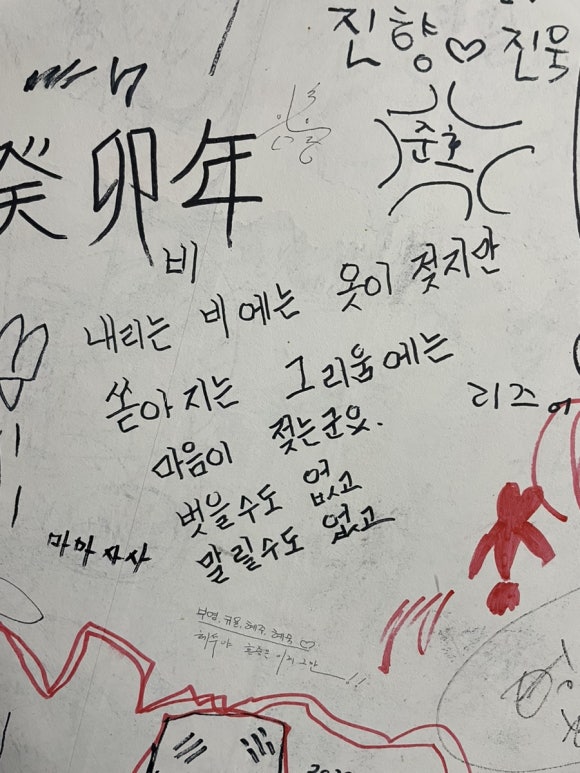 진향♡진욱
준호
癸卯年
비
내리는 비에는 옷이 젖지만
쏟아지는 그리움에는
마음이 젖는군요.
벗을수도 없고
말릴수도 없고
리즈
마마